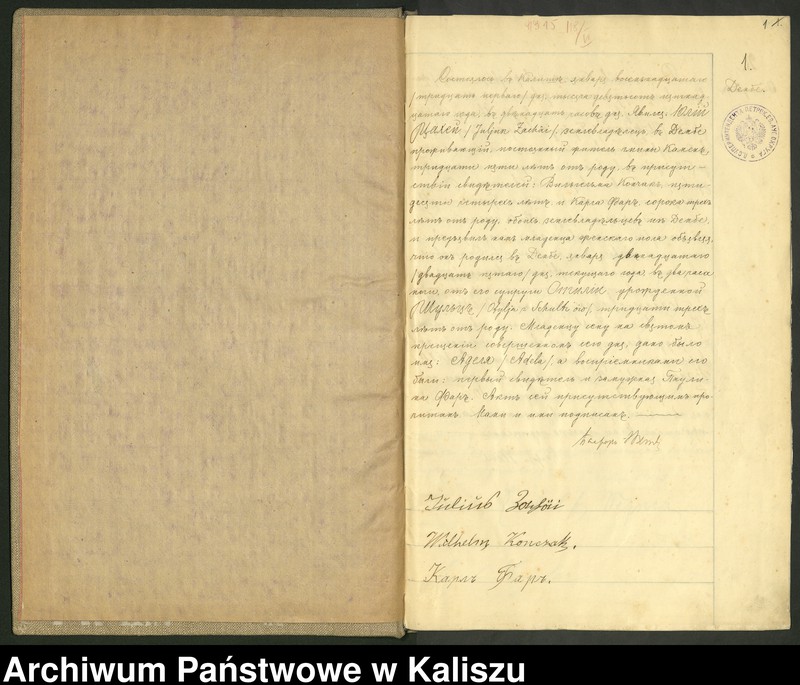 1.
Дембе.
Состоялось въ Калишѣ, января восемнадцатаго
/тридцать перваго/ дня, тысяча девятьсотъ
года, въ двѣнадцать часовъ дня. Явился Юлій
Цахей /Juljus Zachäi/, землевладѣлецъ, въ Дембе
проживающій, постоянный житель гмины
тридцати пяти лѣтъ отъ роду, въ присут-
ствіи свидѣтелей: Вильгельма Кончакъ, пяти-
десяти четырехъ лѣтъ и Карла Фаръ, сорока трехъ
лѣтъ отъ роду, обоихъ землевладѣльцевъ изъ Дембе,
и предъявилъ намъ младенца женскаго пола объявляя,
что онъ родился въ Дембе, января двѣнадцатаго
/двадцать пятаго/ дня, текущаго года въ два часа
отъ его супруги Отиліи урожденной
Шульцъ /Otylja Schultz/, тридцати трехъ
лѣтъ отъ роду. Младенцу сему на святомъ
крещеніи совершенномъ сего дня, дано было
имя: Аделя /Adela/, а воспріемниками его
были: первый свидѣтель и замужняя Паули-
на Фаръ. Актъ сей присутствующимъ про-
читанъ. Нами и ими подписанъ.
Пасторъ
Julius Zachäi
Wilhelm Konczak.
Карлъ Фаръ.
Archiwum Państwowe w Kaliszu